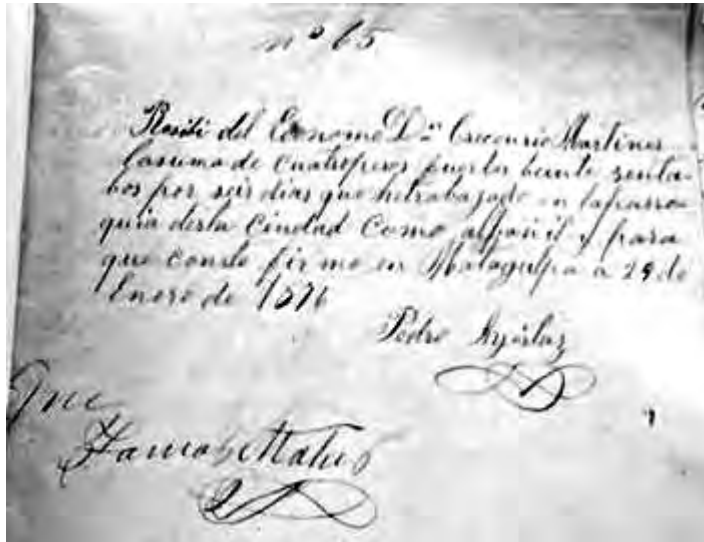 nº 65
Resibi del Economo Dn Grecourio Martines
lasuma de cuatropesos fuertes beinte senta-
bos por seis dias que hetrabajado en laparro-
quia desta Ciudad Como alpañil y para
que conste firmo en Matagalpa a 29 de
Enero de 1876
Pedro
Tomas Matus